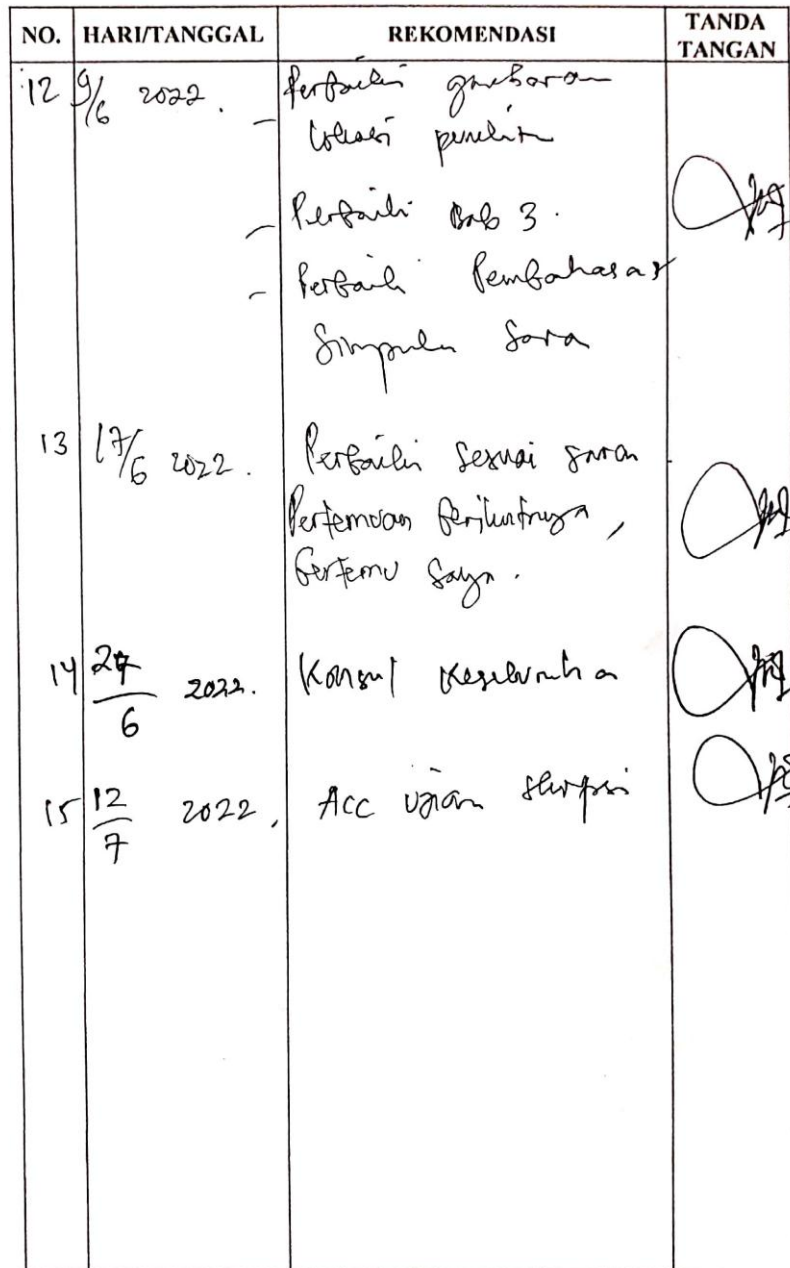 NO. HARI/TANGGAL REKOMENDASI TANDA TANGAN
12 9/6 2022. Perbaiki gambaran
lokasi penelitian
- Perbaiki Bab 3.
- Perbaiki Pembahasan
Simpulan Saran
13 17/6 2022. Perbaiki sesuai saran
Pertemuan berikutnya,
bertemu saya.
14 27/6 2022. Konsul Keseluruhan
15 12/7 2022, Acc ujian skripsi